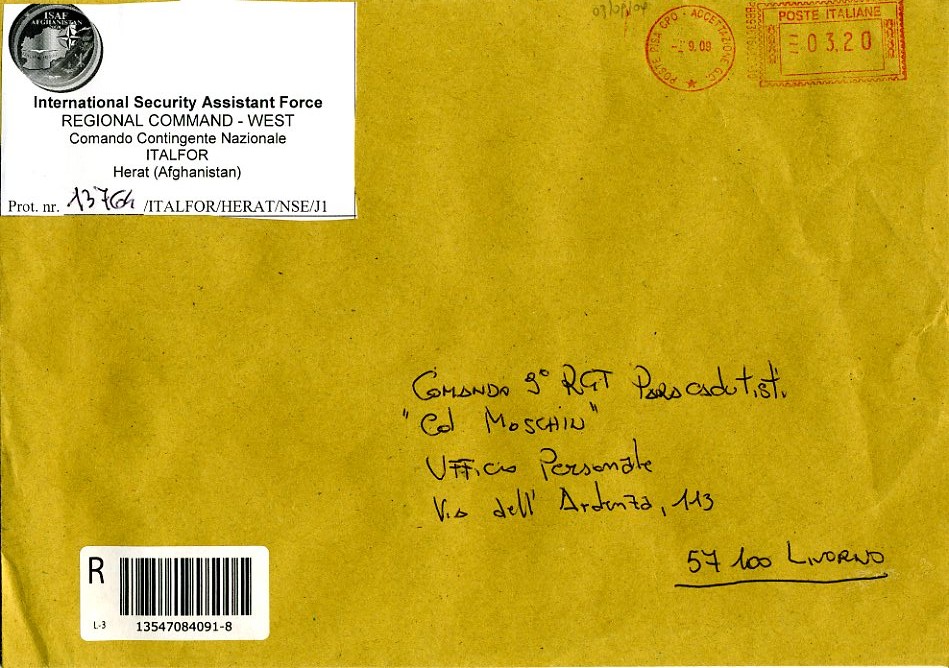 ISAF
AFGHANISTAN
International Security Assistant Force
REGIONAL COMMAND - WEST
Comando Contingente Nazionale
ITALFOR
Herat (Afghanistan)
Prot. nr. 13764 /ITALFOR/HERAT/NSE/J1
POSTE PISA CPO - ACCETTAZIONE G.C.
9.09
POSTE ITALIANE
03.20
Comando 9° RGT Paracadutisti
"Col MOSCHIN"
Ufficio Personale
Via dell' Ardenza, 113
57100 LIVORNO
R
L-3
13547084091-8